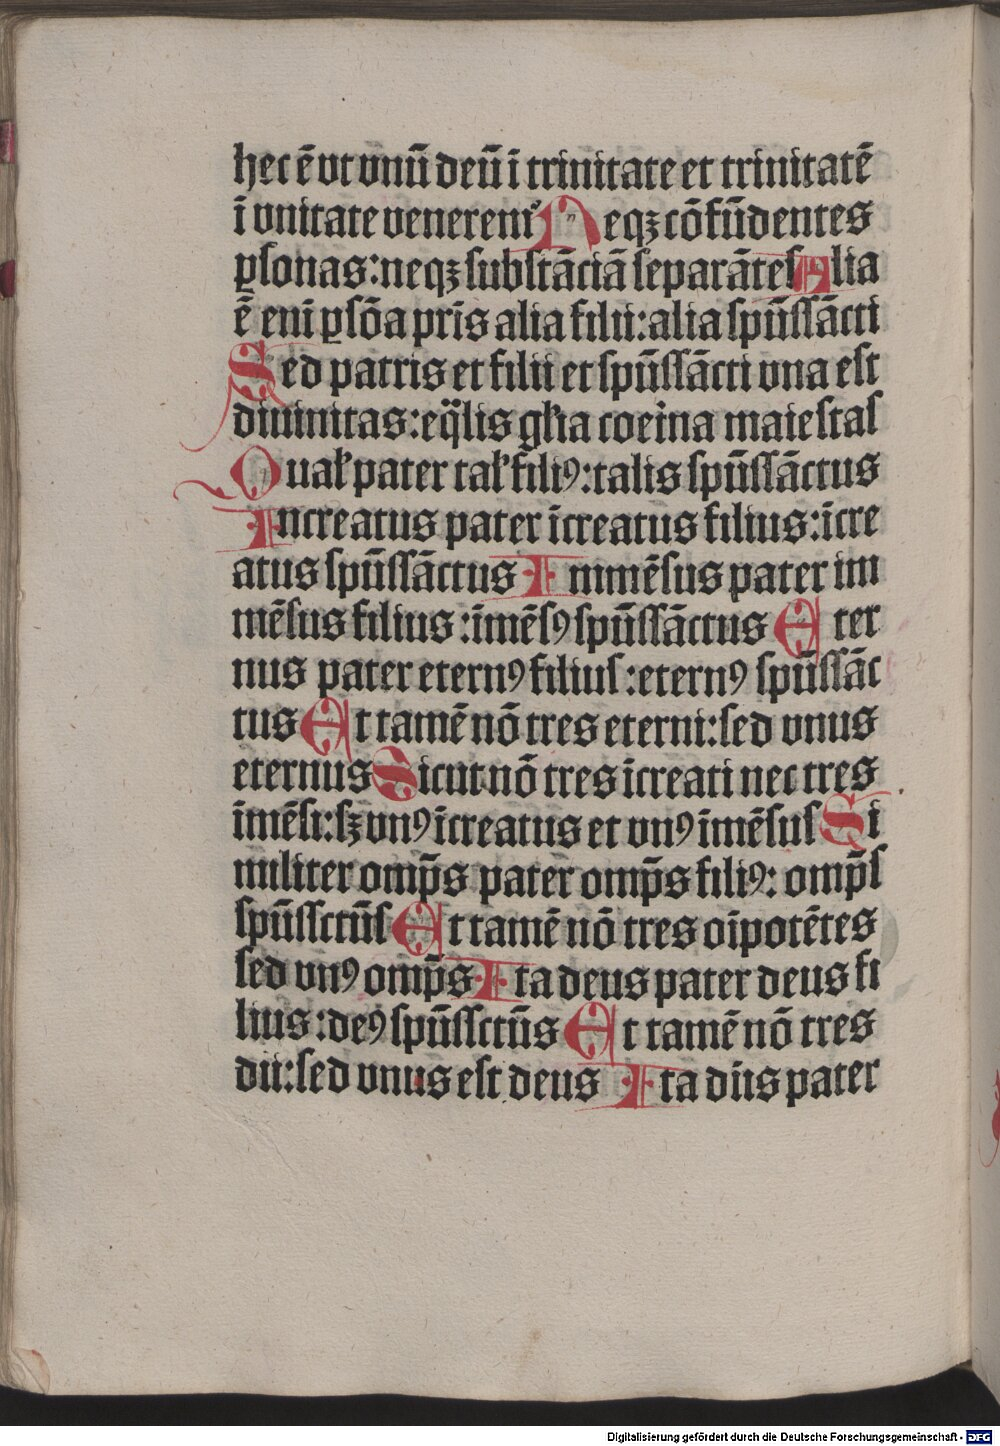 hec ē vt vnū deū ī trinitate et trinitatē
ī vnitate veneremꝰ Neqꝫ cōfūdentes
ꝑsonas: neqꝫ substāciā separātes Alia
ē eni ꝑsōa pris alia filii: alia spūssācti
Sed patris et filii et spūssācti vna est
diuinitas: eq̈lis gl̄ia coeīna maiestas
Qual̓ pater tal̓ filiꝰ: talis spūssāctus
Increatus pater īcreatus filius: īcre
atus spūssāctus Inmēsus pater im
mēsus filius: īmēsꝰ spūssāctus Eter
nus pater eternꝰ filius: eternꝰ spūssāc
tus Et tamē nō tres eterni: sed vnus
eternus Sicut nō tres īcreati nec tres
īmēsi: sꝫ vnꝰ īcreatus et vnꝰ īmēsus Si
militer omp̄s pater omp̄s filiꝰ: omp̄s
spūssctūs Et tamē nō tres oīpotētes
sed vnꝰ omp̄s Ita deus pater deus fi
lius: deꝰ spūssctūs Et tamē nō tres
dii: sed vnus est deus Ita dn̄s pater
Digitalisierung gefördert durch die Deutsche Forschungsgemeinschaft - DFG